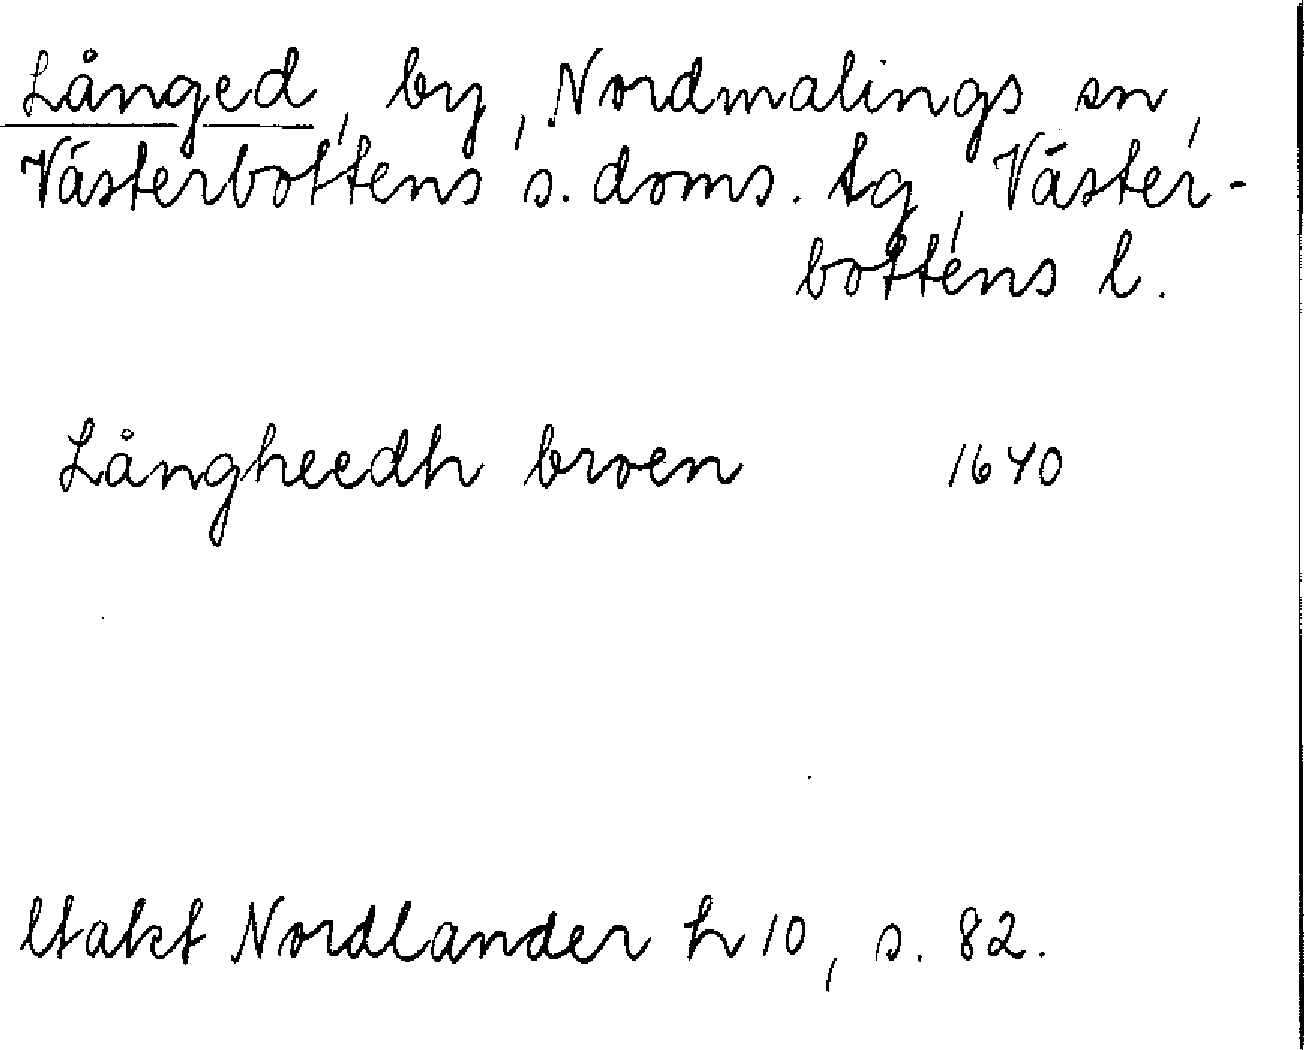 Långed, by, Nordmalings sn,
Västerbottens s. doms. tg, Väster-
bottens l.
Långheedh broen 1640
ltakt Nordlander h 10, s. 82.